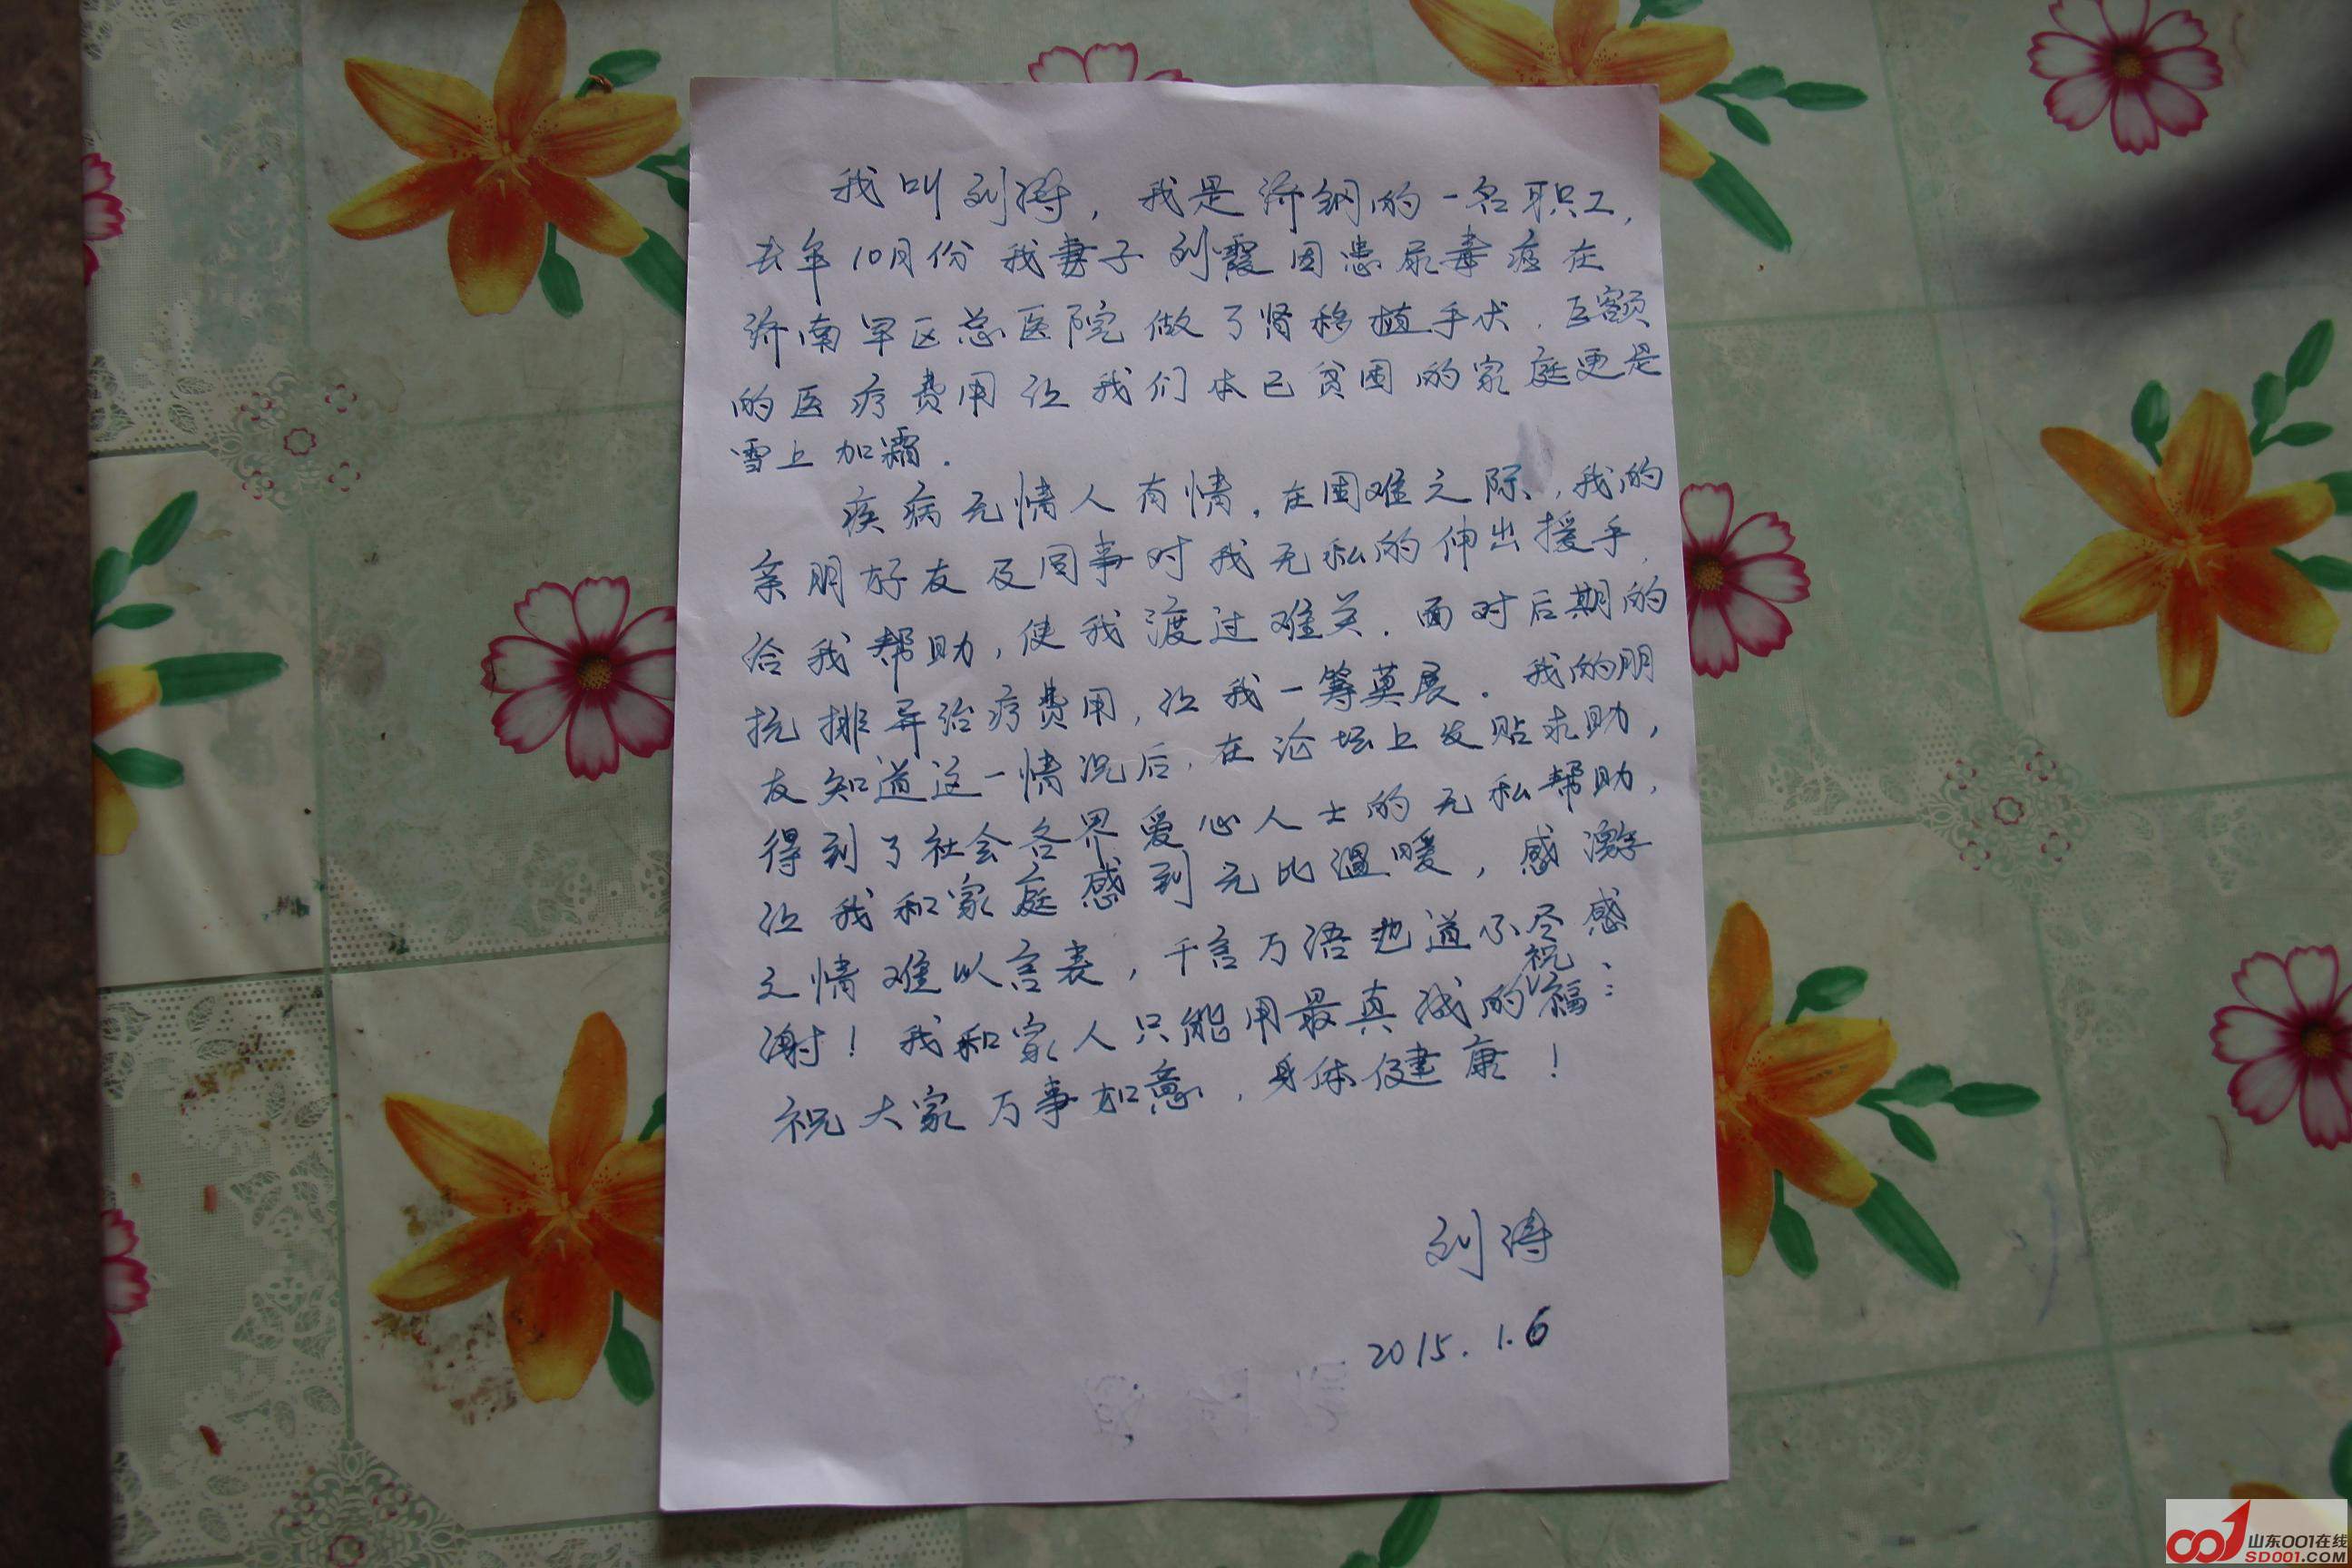 我叫刘涛，我是济钢的一名职工，
去年10月份我妻子刘霞因患尿毒症在
济南军区总医院做了肾移植手术．巨额
的医疗费用让我们本已贫困的家庭更是
雪上加霜．
疾病无情人有情．在困难之际、，我的
亲朋好友及同事对我无私的伸出援手．
给我帮助，使我渡过难关．面对后期的
抗排异治疗费用，让我一筹莫展．我的朋
友知道这一情况后，在论坛上发贴求助，
得到了社会各界爱心人士的无私帮助，
让我和家庭感到无比温暖，感激
之情难以言表，千言万语也道不尽感
谢！我和家人只能用最真诚的祝福：
祝大家万事如意，身体健康！
刘涛
2015.1.6
山东001在线
SD001.COM